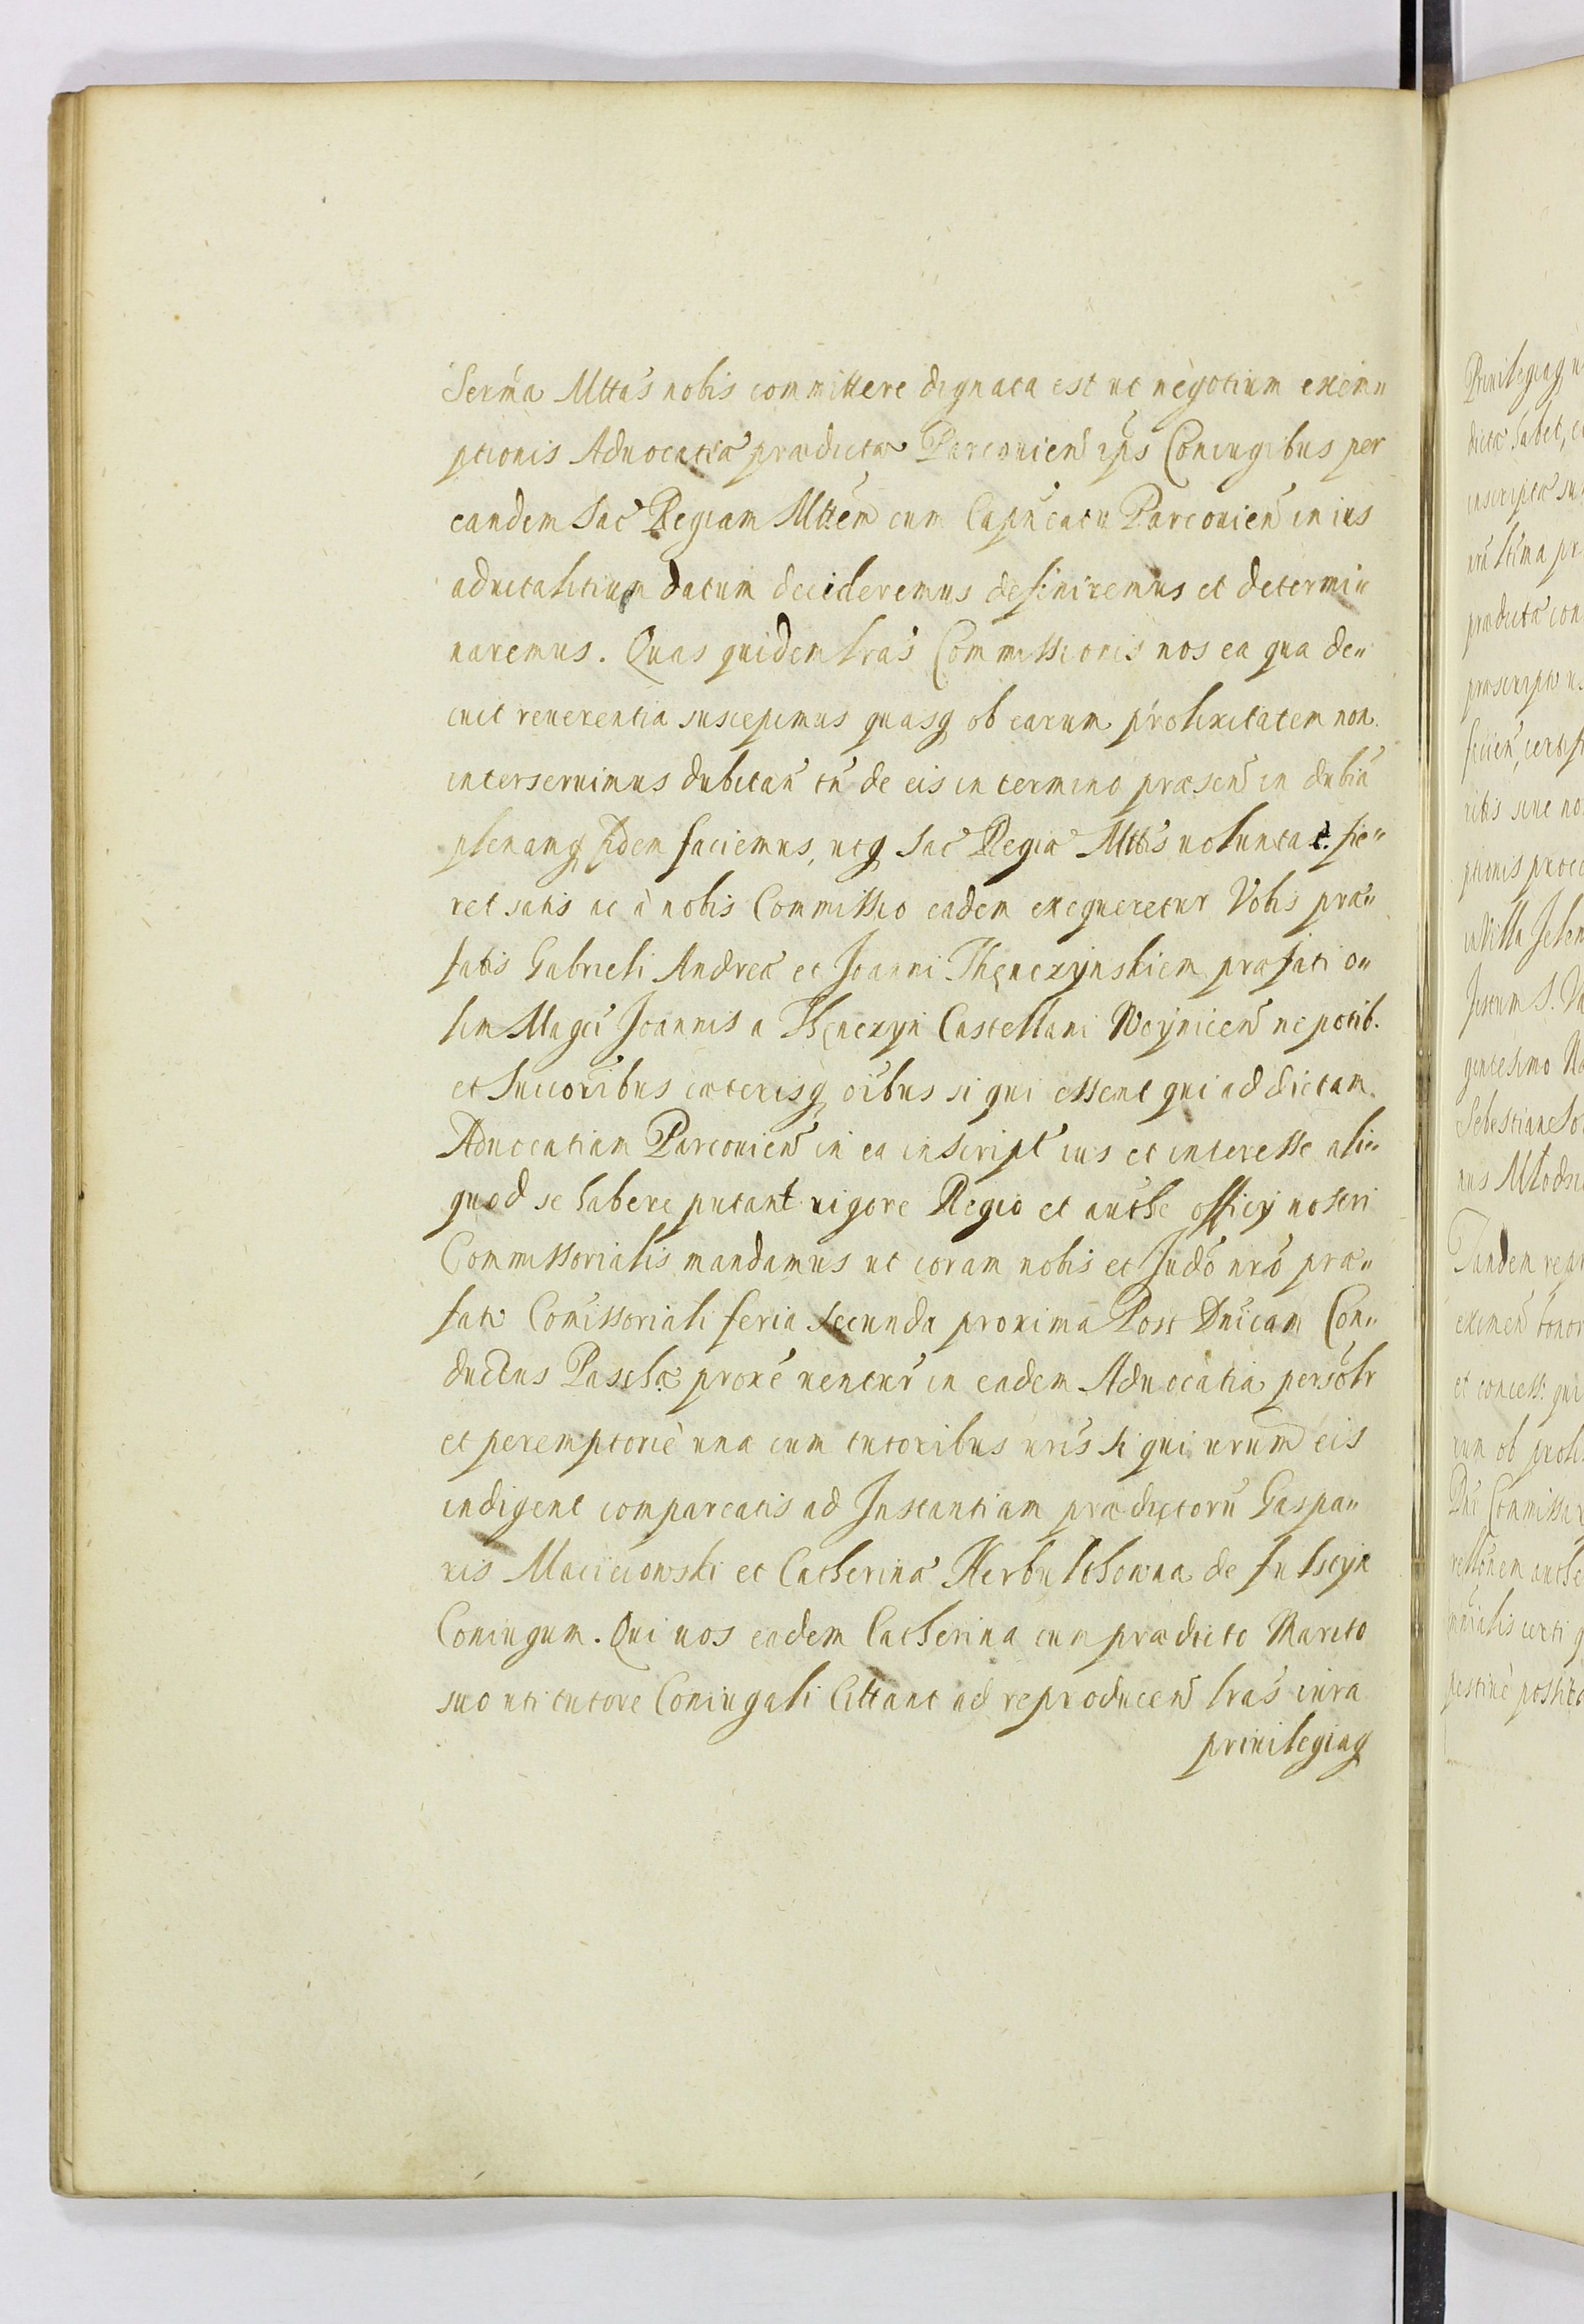 Serma Mttas nobis committere dignata est ut negotium exem„
ptionis Aduocatiæ prædictæ Parcouien ips Coniugibus per
eandem Sac Regiam Mttem cum Capncatu Parcouien in ius
aduitalitium datum decideremus definiremus et determi„
naremus. Quas quidem lras Commissionis nos ea qua de„
cuit reuerentia suscepimus quasq ob earum prolixitatem non
interseruimus dubitan tn de eis in termino præsen in dubiu
plenamq fidem faciemus, utq Sac Regiæ Mttis uoluntat. fie„
ret satis ac à nobis Commissio eadem exequeretur Vobis præ„
fatis Gabrieli Andreæ et Joanni Thęnczynskiem præfati o„
lim Magci Joannis a Thęnczyn Castellani Woynicen nepotib.
et Succoribus cæterisq oibus si qui essent qui ad dictam
Aduocatiam Parcouien in ea inscript ius et interesse ali„
quod se habere putant uigore Regio et authe officy nostri
Commissorialis mandamus ut coram nobis et Judo nro præ„
fato Comissoriali feria secunda proxima Post Dnicam Con„
ductus Paschæ proxe uentur in eadem Aduocatia persolr
et peremptoriè una cum tutoribus uris si qui urum eis
indigent compareatis ad Instantiam prædictoru Gaspa„
ris Macieiowski et Catherinæ Herbulthowna de Fulstyn
Coniugum. Qui uos eadem Catherina cum prædicto Marito
suo uti tutore Coniugali Cittant ad reproducen lras iura
priuilegiaq